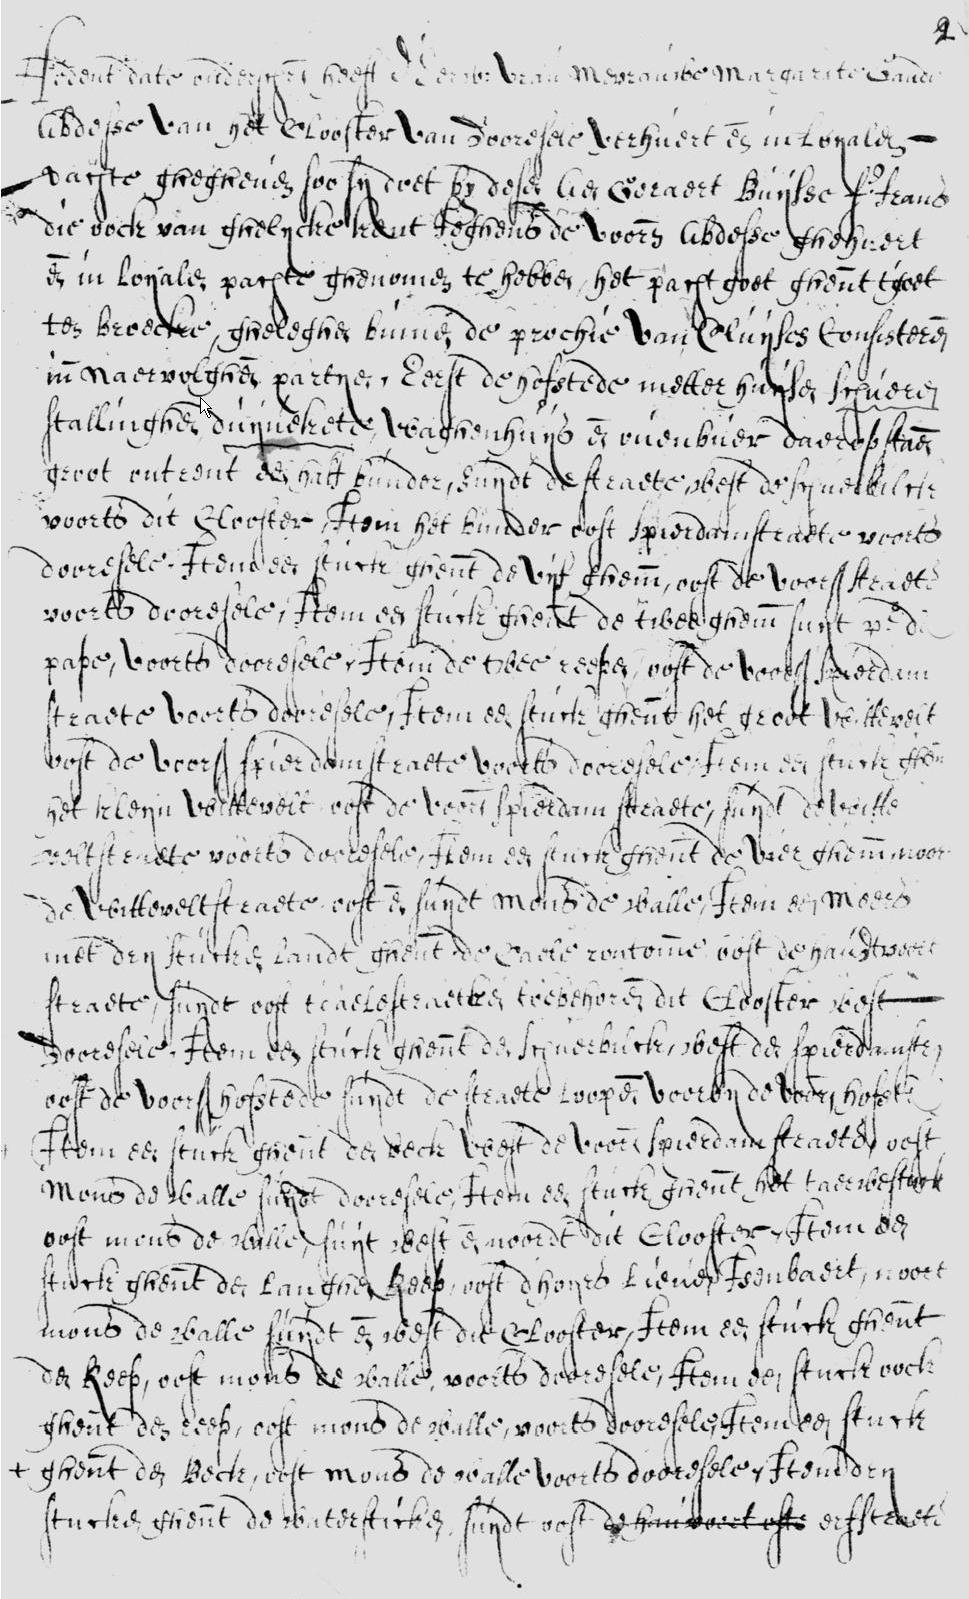 2
Ten date onderschr heeft Eerw: vrau Mevrauwe Margarite
Abdesse van het Clooster van Dooresele verhuert en in loyalen
pachte ghegheven soo sy doet by desen aen Geraert Buysse fs Frans
die oock van ghelycke kent jeghens de voorn Abdesse ghehuert
en in loyalen pachte ghenomen te hebben, het pacht goet ghent tgoet
ten Broecke, gheleghen binnen de prochie van Cluyse Consisteren
inn naervolghen partyen, Eerst de hofstede metter huysen schueren
stallinghen duyvekete, Waghenhuys en ovenbuer daerop staen
groot ontrent een half bunder, suydt de straete, west de schuerbilck
voorts dit Clooster, Item het bunder oost Spierdamstraete voorts
dooresele. Item een stuck ghent de vyf ghem, oost de voors straete
voorts dooresele, Item een stuck ghent de twee ghem suyt
pape, voorts dooresele, Item de twee reepen, oost de voors spierdam
straete voorts dooresele, Item een stuck ghent het groot Wittevelt
oost de voors spierdamstraete voorts dooresele, Item een stuck ghen
het kleyn Wittevelt oost de voorn spierdamstraete, suydt de witte
veltstraete voorts dooresele, Item een stuck ghent de vier ghem, noor
de Witteveltstraete oost en suydt mons de Walle, Item een Meers
met dry stucken landt ghent de Caele rontomme oost de
straete, suydt oost tcaelestraetken toebehoren dit Clooster west
Dooresele. Item een stuck ghent den schuerbilck, west den spierdamstr
oost de voors hofstede suydt de straete loopen voorby de voorn hofste
Item een stuck ghent den beck West de voorn spierdamstraete, oost
Mons de Walle suydt dooresele, Item een stuck ghent het taerwestuck
oost mons de Walle, suyt west en noordt dit Clooster, Item een
stuck ghent den Langhen Reep, oost dhoyrs Lieven Isenbaert, noort
mons de Walle suydt en west dit Clooster, Item een stuck ghent
den Reep, oost mons de Walle, voorts dooresele, Item een stuck oock
ghent den reep, oost mons de Walle, voorts dooresele, Item een stuck
+ ghent den Beck, oost mons de Walle voorts dooresele, Item dry
stucken ghent de Waterstucken, suydt oost erfstraete